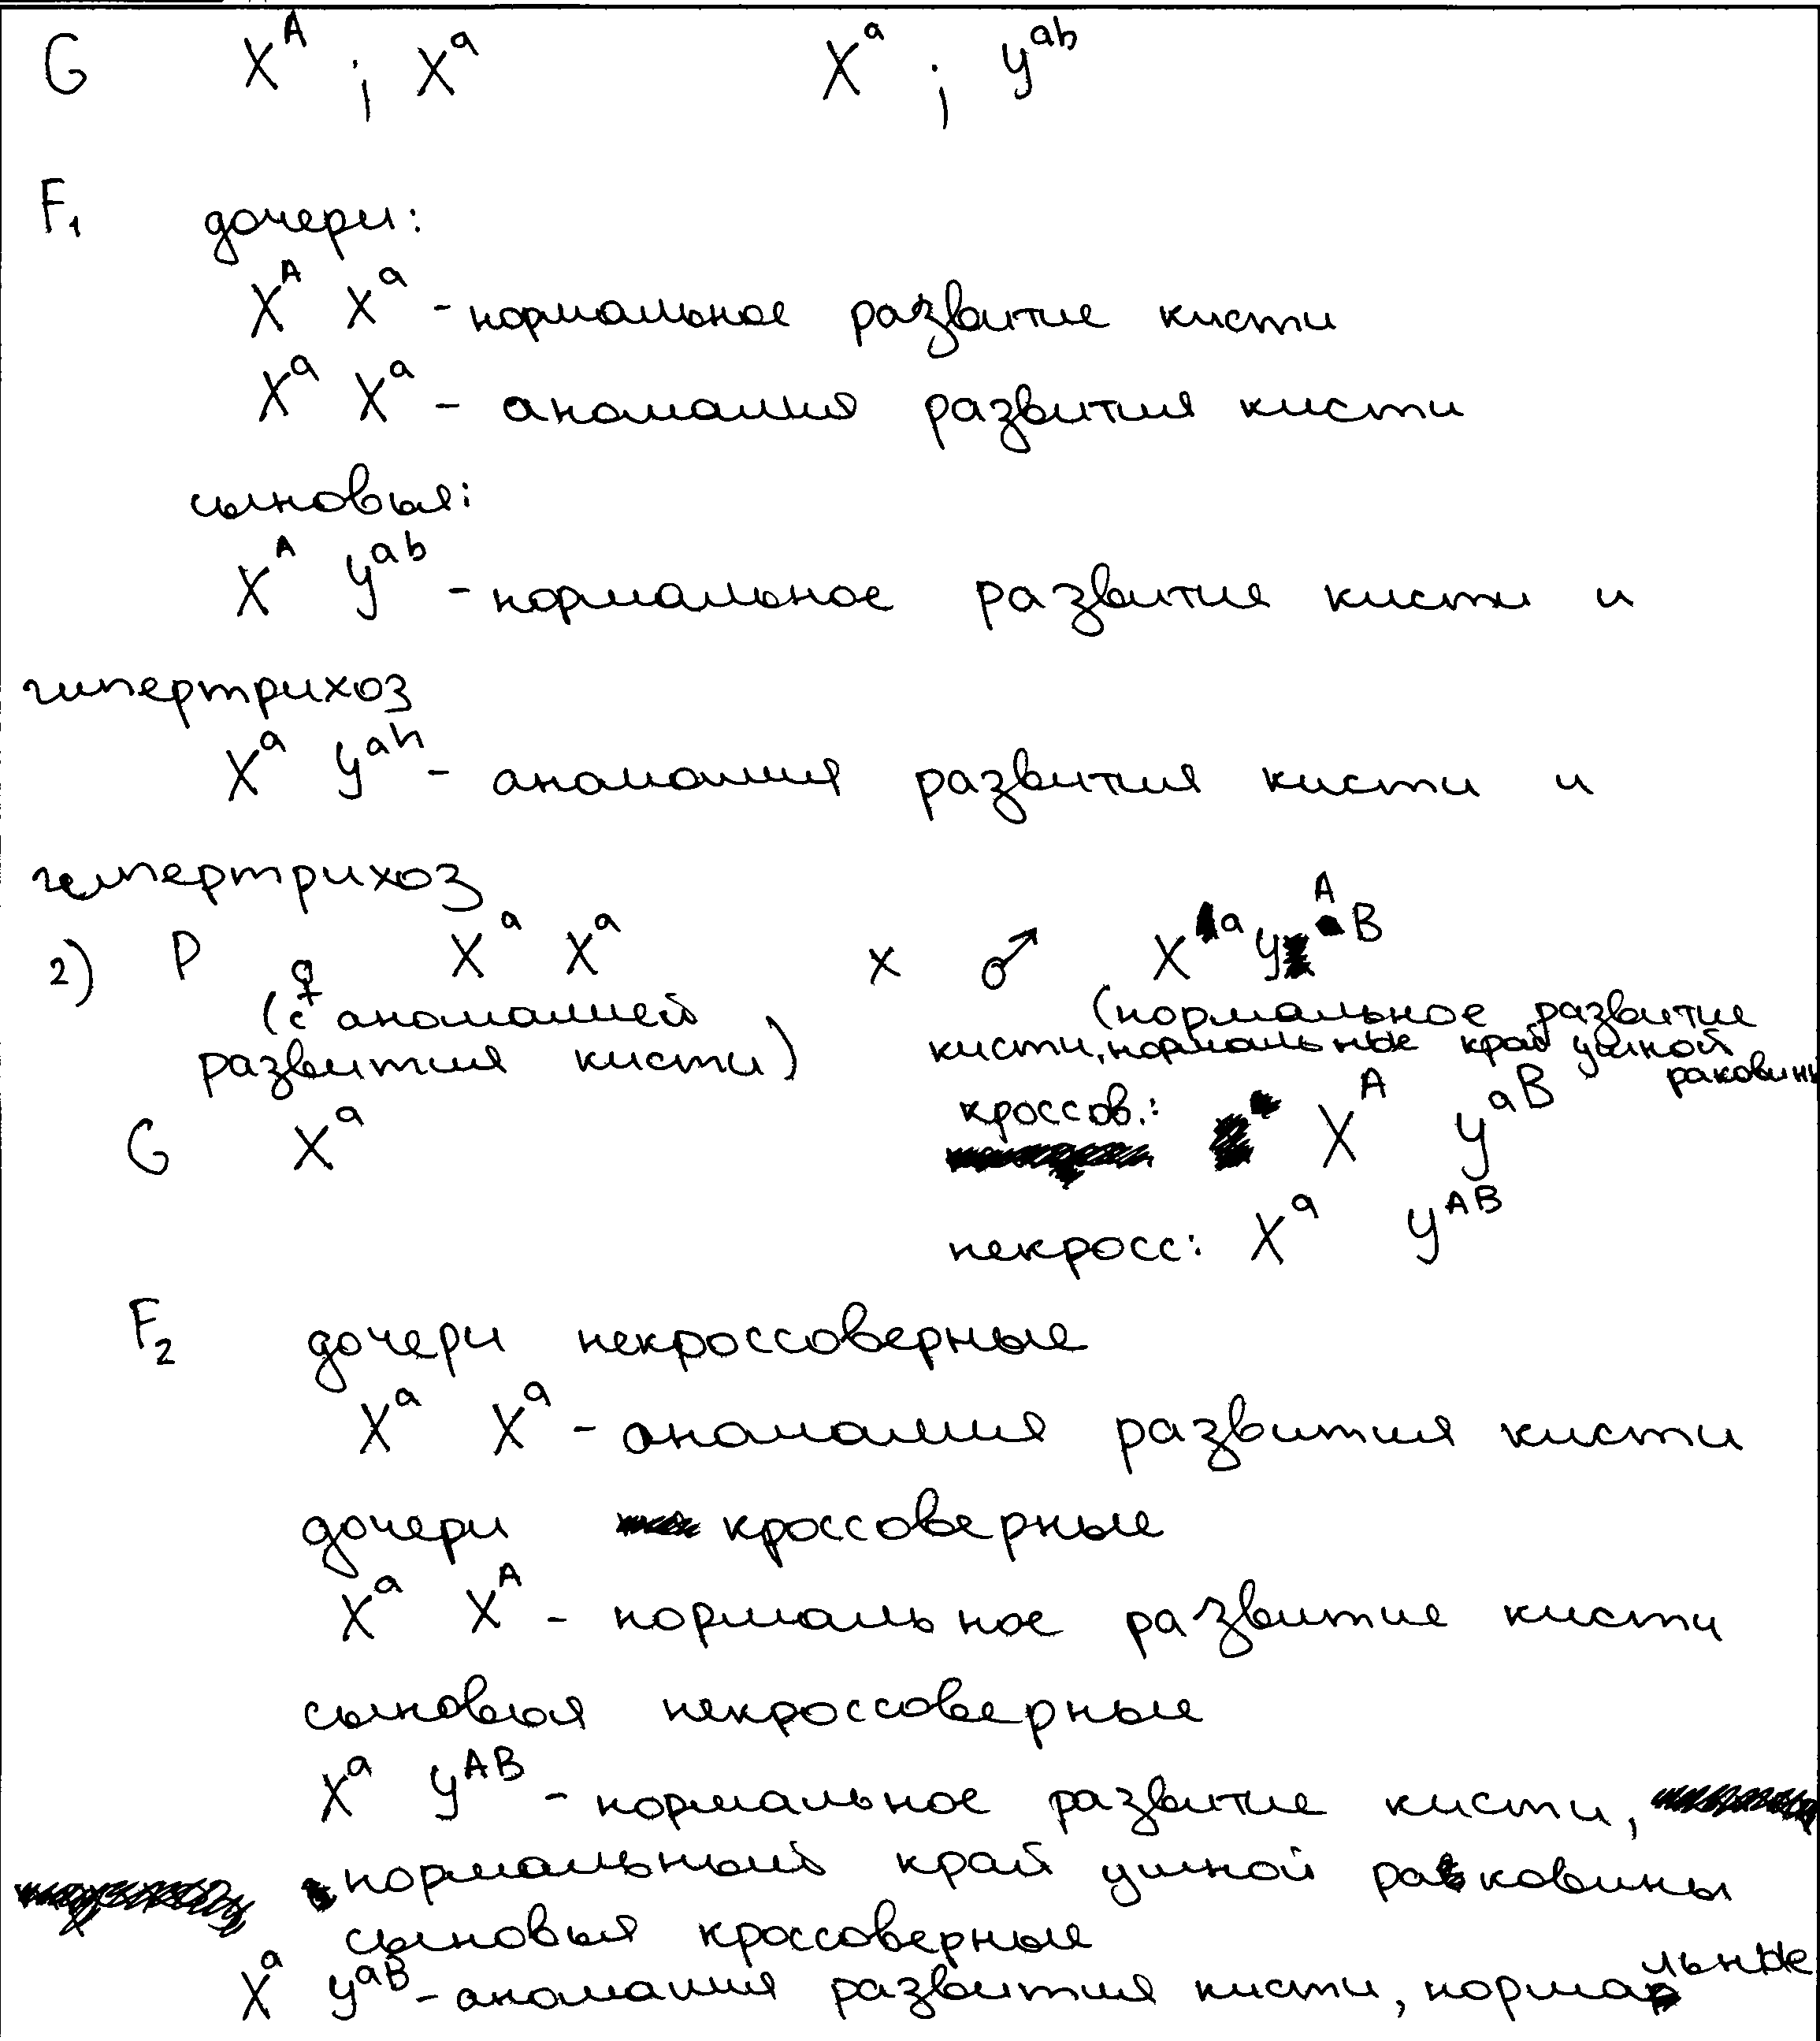 G X^A ; X^a X^a ; У^ab
F₁ дочери:
X^A X^a - нормальное развитие кисти
X^a X^a - аномалия развития кисти
сыновья:
X^A У^ab - нормальное развитие кисти и
гипертрихоз
X^a У^ab - аномалия развития кисти и
гипертрихоз
2) P ♀ X^a X^a x ♂ X^a У^AB
(с аномалией (нормальное развитие
развития кисти) кисти, нормальные край ушной раковины
кроссов.: X^A У^aB
G X^a
некросс: X^a У^AB
F₂ дочери некроссоверные
X^a X^a - аномалия развития кисти
дочери кроссоверные
X^a X^A - нормальное развитие кисти
сыновья некроссоверные
X^a У^AB - нормальное развитие кисти,
нормальный край ушной раковины
сыновья кроссоверные
X^a У^aB - аномалия развития кисти, нормальные